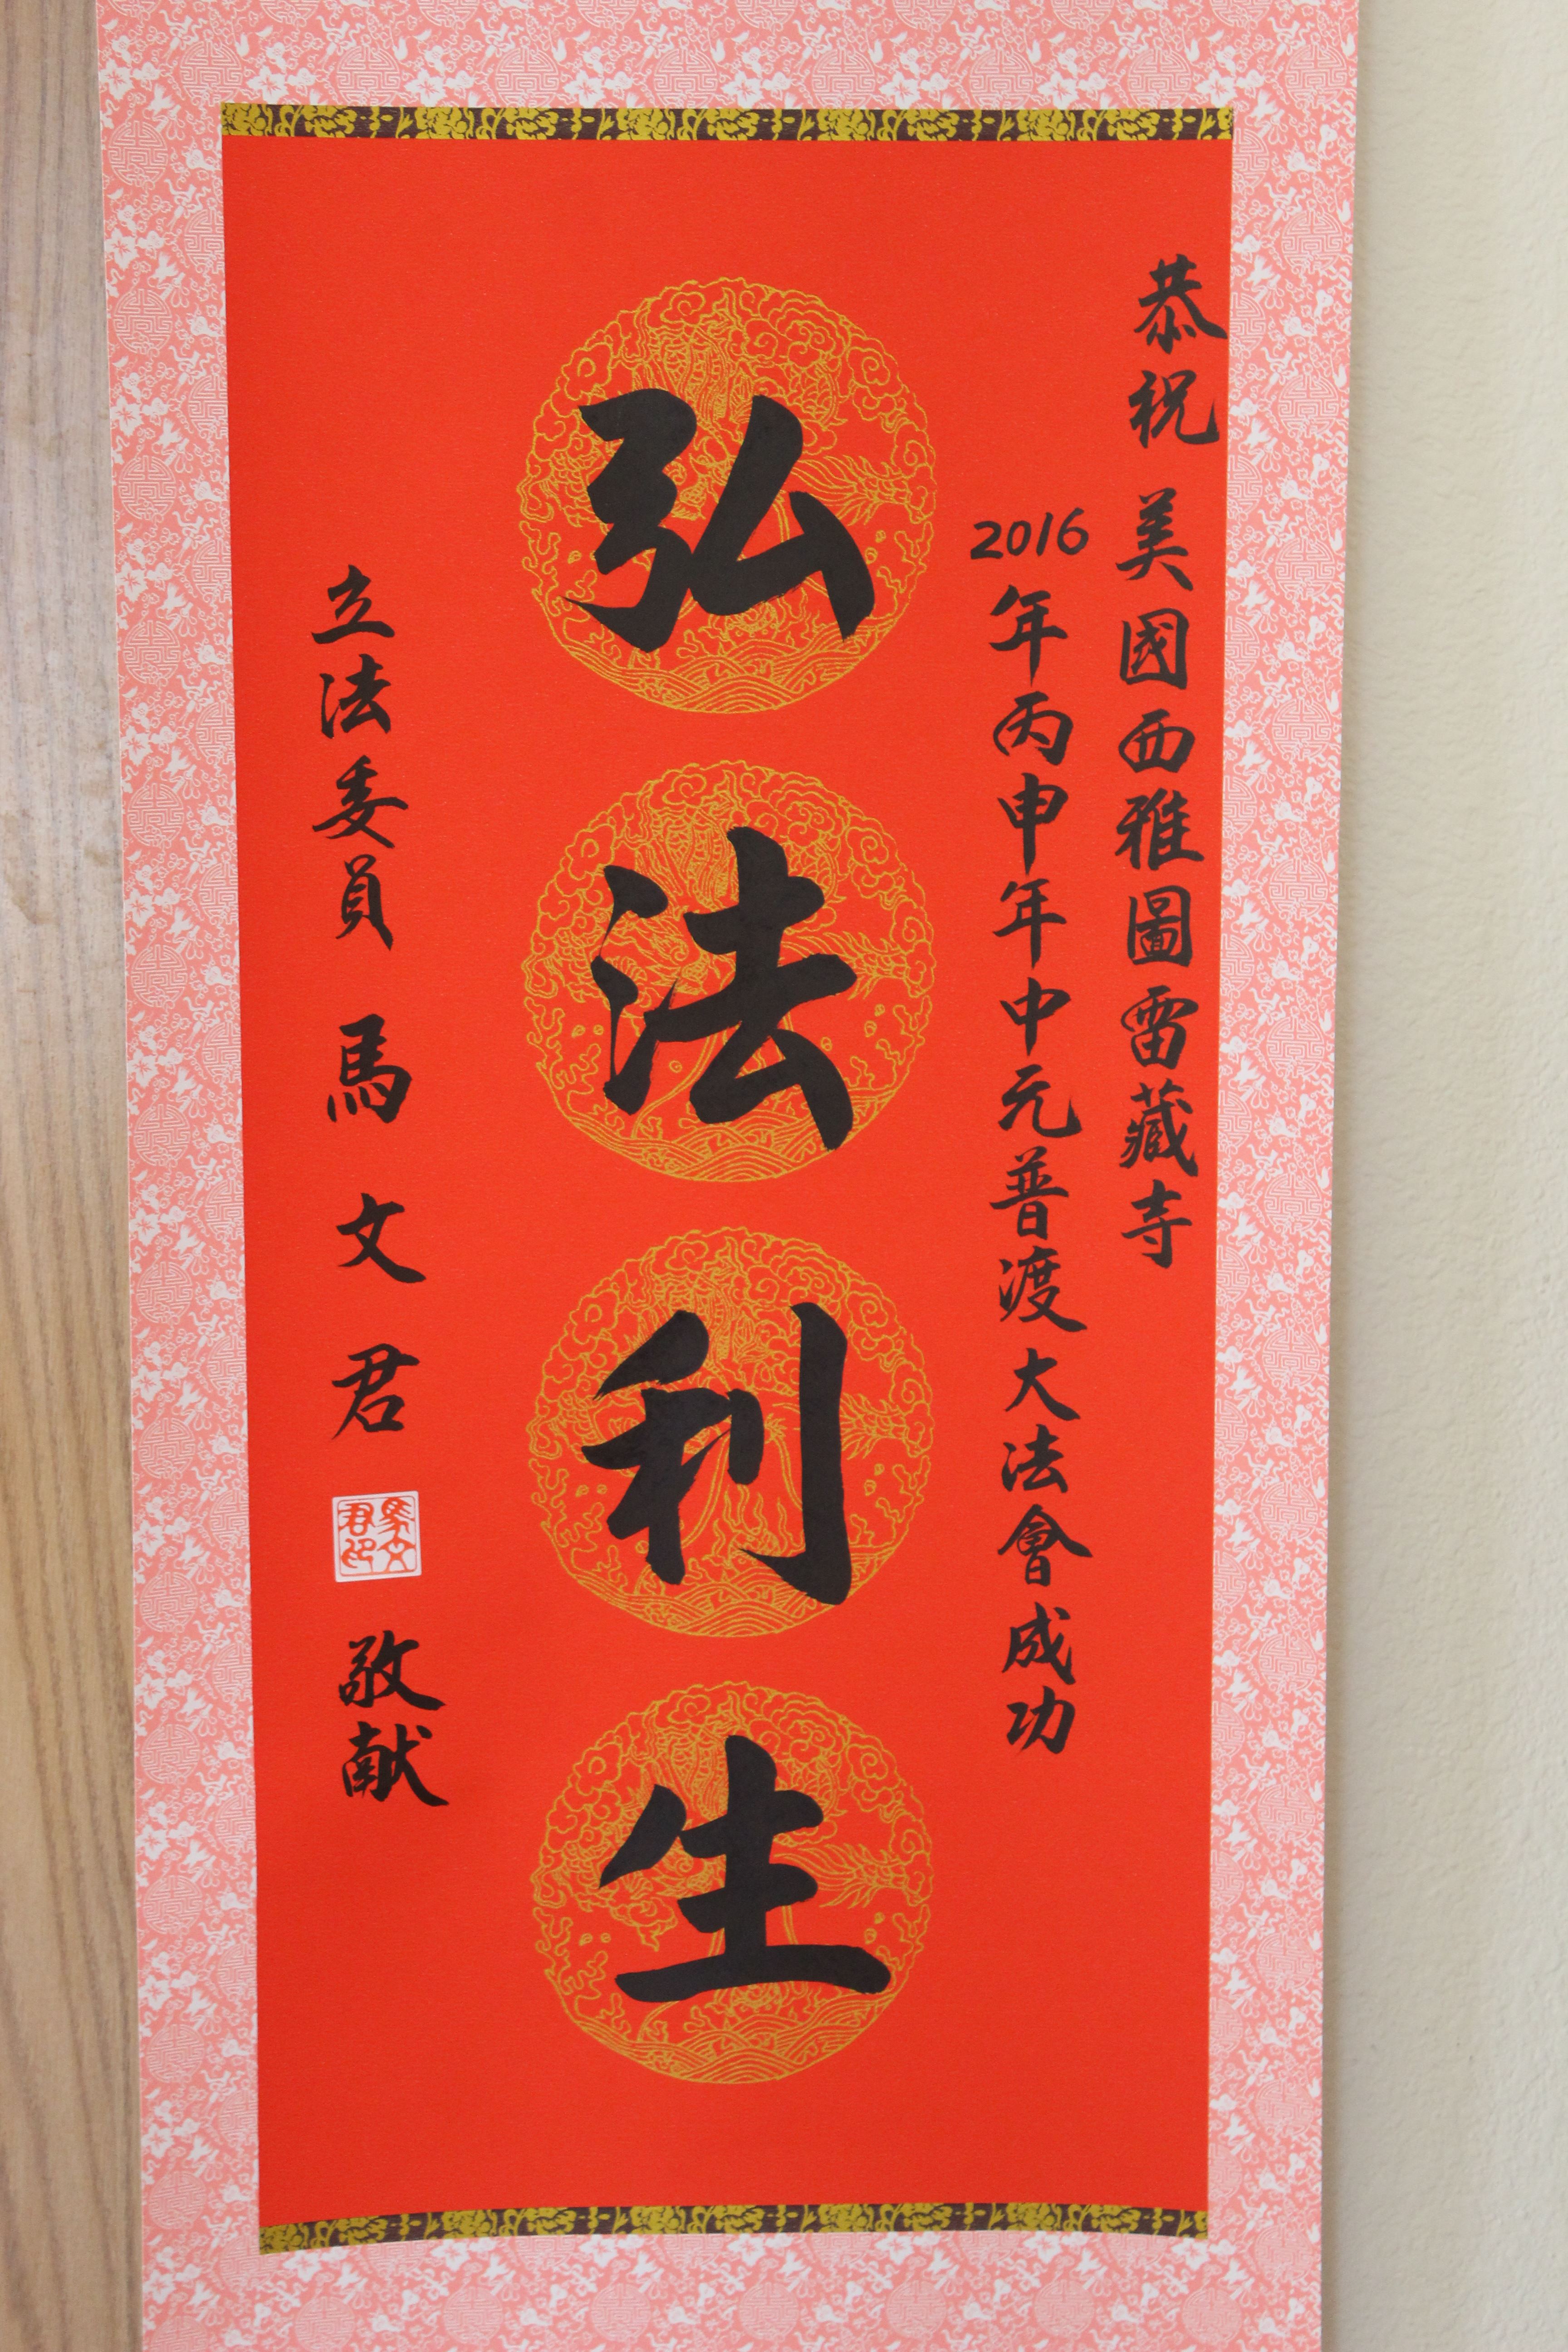 恭祝 美國西雅圖雷藏寺
2016年丙申年中元普渡大法會成功
弘法利生
立法委員 馬文君 敬献
馬文君印